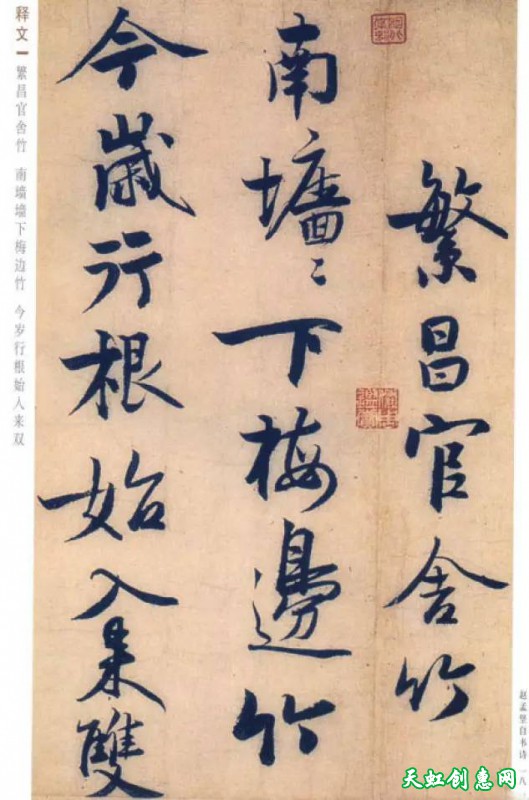 繁昌官舍竹
南墻〻下梅邊竹
今嵗行根始入来雙
释文 繁昌官舍竹 南墙墙下梅边竹 今岁行根始人来双
赵孟坚自书诗 一八
天虹创惠网